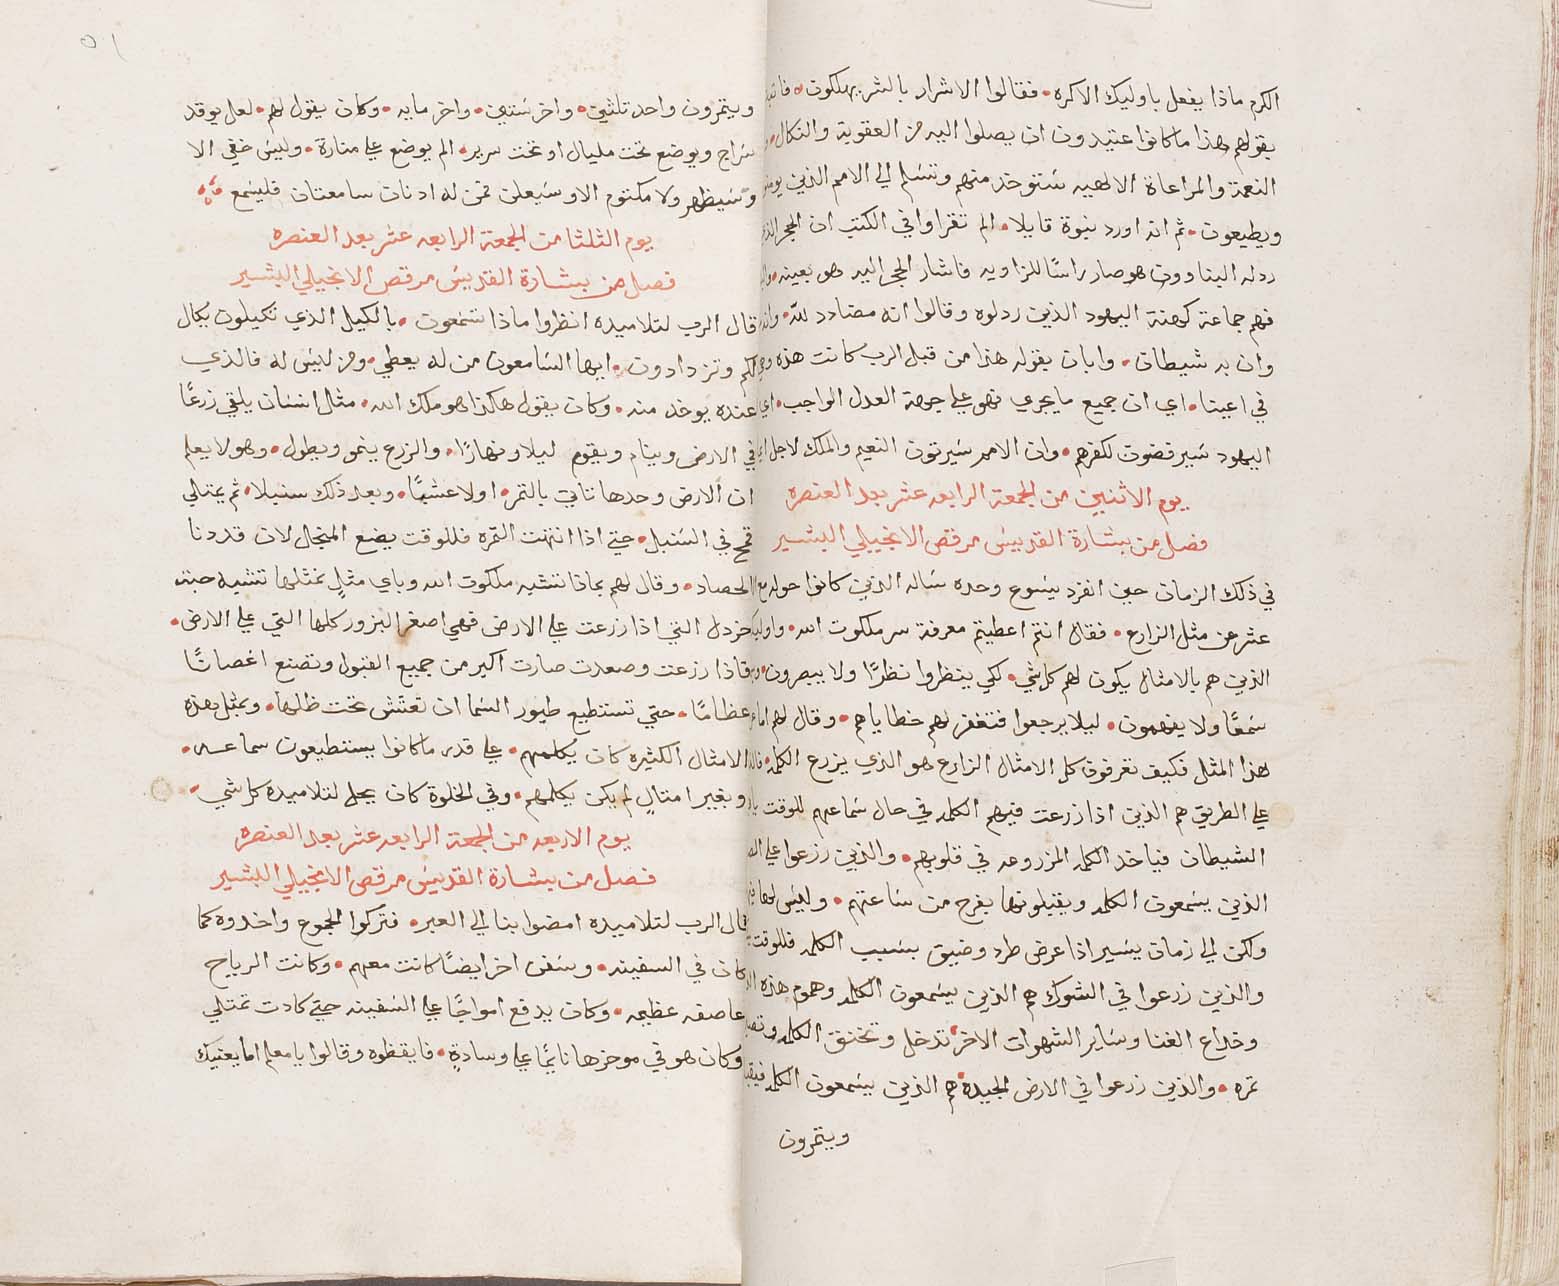 الكرم ماذا يفعل باوليك الاكره • فقالوا الاشرار بالشر يهلكون •
يقولهم هذا ما كانوا عتيدون ان يصلوا اليه من العقوبة والنكال •
النعمة والمراعاة الالهيه ستنوخد منهم وتتسلم الي الامم الذين
ويطيعون • ثم انه اورد نبوة قايلا • الم تقراوا في الكتب ان الحجر
ردله البناوون هو صار راسًا للزاويه فاشار بالحجر اليه هو بعينه •
فهم جماعة كهنة اليهود الذين ردلوه وقالوا انه مضادد لله •
وان به شيطان • وابان بقوله هذا من قبل الرب كانت هذه
في اعيننا • اي ان جميع ما يجري فهو علي جهة العدل الواجب •
اليهود سيرفضون لكفرهم • وان الامم سيرتون النعيم والملك لاجل
يوم الاثنين من الجمعة الرابعه عشر بعد العنصره
فصل من بشارة القديس مرقص الانجيلي البشير
في ذلك الزمان حين انفرد يسوع وحده ساله الذين كانوا حوله مع
عشر عن مثل الزارع • فقال انتم اعطيتم معرفة سر ملكوت الله •
الذين هم بالامثال يكون لهم كل شي • لكي ينظروا نظرًا ولا يبصرون •
سمعًا ولا يفهمون • ليلا يرجعوا فتغفر لهم خطاياهم • وقال لهم اما
هذا المثل فكيف تعرفون كل الامثال الزارع هو الذي يزرع الكلمه •
علي الطريق هم الذين اذا زرعت فيهم الكلمه في حال سماعهم للوقت
الشيطان فياخد الكلمه المزروعه في قلوبهم • والذين زرعوا علي
الذين يسمعون الكلمه ويقبلونها بفرح من ساعتهم • وليس لها
ولكن الي زمان يسير اذا عرض طرد وضيق بسبب الكلمه فللوقت
والذين زرعوا في الشوك هم الذين يسمعون الكلمه وهموم هذه
وخداع الغنا وساير الشهوات الاخر تدخل وتخنق الكلمه
تمره • والذين زرعوا في الارض الجيدة هم الذين يسمعون الكلمه
ويتمرون
٥١
ويتمرون واحد تلثين • واخر ستين • واخر مايه • وكان يقول لهم • لعل يوقد
سراج ويوضع تحت مليال او تحت سرير • الم يوضع علي منارة • وليس خفي الا
وسيظهر ولا مكتوم الا وسيعلن فمن له ادنان سامعتان فليسمع
يوم الثلثا من الجمعة الرابعه عشر بعد العنصره
فصل من بشارة القديس مرقص الانجيلي البشير
قال الرب لتلاميده انظروا ماذا تسمعون • بالكيل الذي تكيلون يكال
لكم وتزدادون • ايها السامعون من له يعطي • ومن ليس له فالذي
عنده يوخد منه • وكان يقول هكذا هو ملك الله • مثل انسان يلقي زرعًا
في الارض وينام ويقوم ليلا ونهارًا • والزرع ينمو ويطول • وهو لا يعلم
ان الارض وحدها تاتي بالتمر • اولا عشبًا • وبعد ذلك سنبلا • ثم يمتلي
قمح في السنبل • حتي اذا انتهت التمره فللوقت يضع المنجل لان قد دنا
الحصاد • وقال لهم بماذا نشبه ملكوت الله وباي مثلٍ نمثلها تشبه حبة
خردل التي اذا زرعت علي الارض فهي اصغر البزور كلها التي علي الارض •
فاذا زرعت وصعدت صارت اكبر من جميع البقول وتصنع اغصانًا
عظامًا • حتي تستطيع طيور السما ان تعشش تحت ظلها • وبمثل هذه
الامثال الكثيره كان يكلمهم • علي قدر ما كانوا يستطيعون سماعه •
وبغير امثالٍ لم يكن يكلمهم • وفي الخلوة كان يحل لتلاميده كل شي •
يوم الاربعه من الجمعة الرابعه عشر بعد العنصره
فصل من بشارة القديس مرقص الانجيلي البشير
قال الرب لتلاميده امضوا بنا الي العبر • فتركوا الجموع واخدوه كما
كان في السفينه • وسفن اخر ايضًا كانت معهم • وكانت الرياح
عاصفه عظيمه • وكان يدفع امواجًا علي السفينه حتي كادت تمتلي
وكان هو في موخرها نايمًا علي وسادةٍ • فايقظوه وقالوا يا معلم اما يعنيك